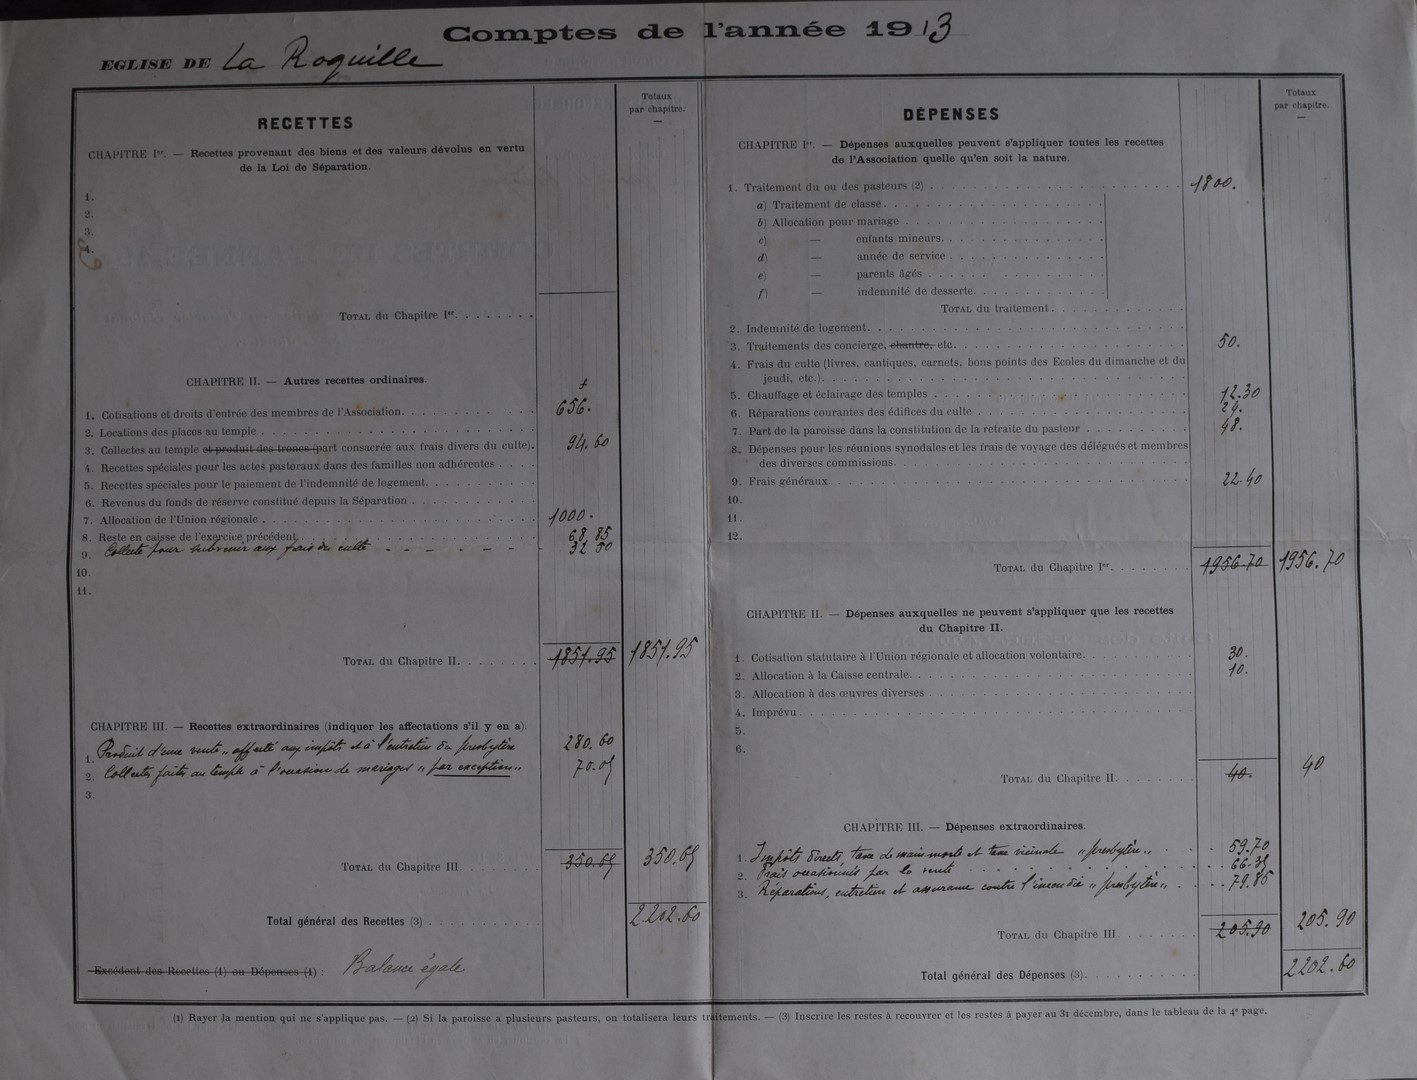 Comptes de l'année 1913
EGLISE DE La Roquille
RECETTES
Totaux
par chapitre.
CHAPITRE Ier. — Recettes provenant des biens et des valeurs dévolus en vertu
de la Loi de Séparation.
1.
2.
3.
4.
TOTAL du Chapitre Ier.
CHAPITRE II. — Autres recettes ordinaires.
1. Cotisations et droits d'entrée des membres de l'Association. 656.
2. Locations des places au temple
3. Collectes au temple et produit des troncs (part consacrée aux frais divers du culte). 94.60
4. Recettes spéciales pour les actes pastoraux dans des familles non adhérentes
5. Recettes spéciales pour le paiement de l'indemnité de logement.
6. Revenus du fonds de réserve constitué depuis la Séparation
7. Allocation de l'Union régionale 1000.
8. Reste en caisse de l'exercice précédent. 68.85
9. Collecte pour subvenir aux frais du culte 32 50
10.
11.
TOTAL du Chapitre II. 1851.95 1851.95
CHAPITRE III. — Recettes extraordinaires (indiquer les affectations s'il y en a).
1. Produit d'une vente „ affecté aux impôts et à l'entretien du presbytère 280.60
2. Collectes faites au temple à l'occasion de mariages „ par exception „ 70.05
3.
TOTAL du Chapitre III. 350.65 350.65
Total général des Recettes (3) 2202.60
Excédent des Recettes (1) ou Dépenses (1) : Balance égale
DÉPENSES
Totaux
par chapitre.
CHAPITRE Ier. — Dépenses auxquelles peuvent s'appliquer toutes les recettes
de l'Association quelle qu'en soit la nature.
1. Traitement du ou des pasteurs (2) 1800.
a) Traitement de classe.
b) Allocation pour mariage
c) — enfants mineurs.
d) — année de service
e) — parents âgés
f) — indemnité de desserte.
TOTAL du traitement.
2. Indemnité de logement.
3. Traitements des concierge, chantre, etc. 50.
4. Frais du culte (livres, cantiques, carnets, bons points des Ecoles du dimanche et du
jeudi, etc.).
5. Chauffage et éclairage des temples 12.30
6. Réparations courantes des édifices du culte 24.
7. Part de la paroisse dans la constitution de la retraite du pasteur 48.
8. Dépenses pour les réunions synodales et les frais de voyage des délégués et membres
des diverses commissions.
9. Frais généraux. 22.40
10.
11.
12.
TOTAL du Chapitre Ier. 1956.70 1956.70
CHAPITRE II. — Dépenses auxquelles ne peuvent s'appliquer que les recettes
du Chapitre II.
1. Cotisation statutaire à l'Union régionale et allocation volontaire. 30.
2. Allocation à la Caisse centrale. 10.
3. Allocation à des œuvres diverses
4. Imprévu
5.
6.
TOTAL du Chapitre II. 40. 40
CHAPITRE III. — Dépenses extraordinaires.
1. Impôts directs, taxe de main-morte et taxe vicinale „ presbytère „ 59.70
2. Frais occasionnés par la vente 66.35
3. Réparations, entretien et assurance contre l'incendie „ presbytère „ 79.85
TOTAL du Chapitre III. 205.90 205.90
Total général des Dépenses (3). 2202.60
(1) Rayer la mention qui ne s'applique pas. — (2) Si la paroisse a plusieurs pasteurs, on totalisera leurs traitements. — (3) Inscrire les restes à recouvrer et les restes à payer au 31 décembre, dans le tableau de la 4e page.